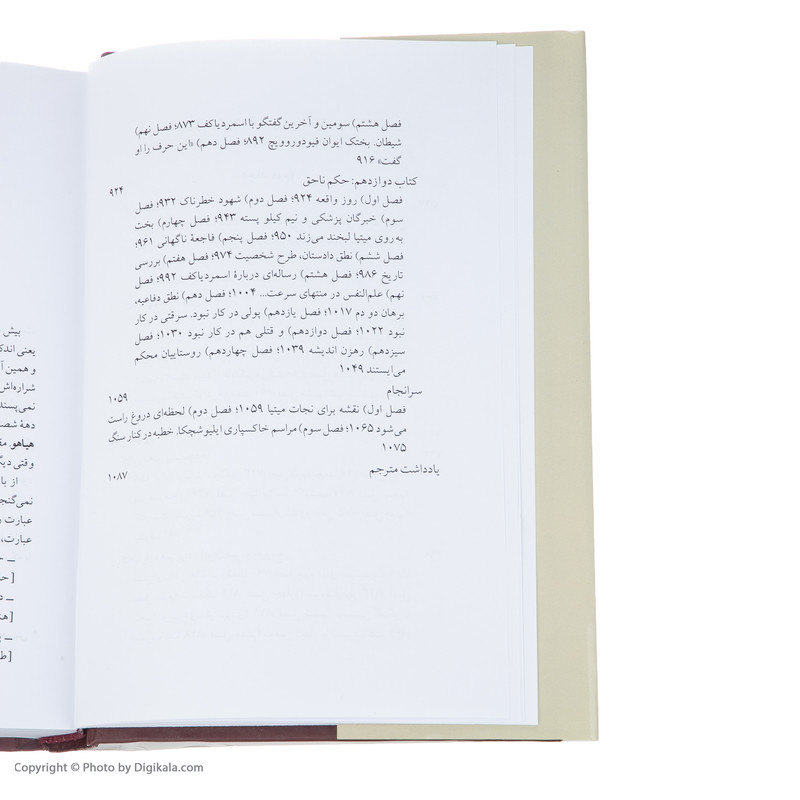 فصل هشتم) سومین و آخرین گفتگو با اسمردیاکف ۸۷۳؛ فصل نهم)
شیطان. بختک ایوان فیودوروویچ ۸۹۲؛ فصل دهم) «این حرف را او
گفت» ۹۱۶
کتاب دوازدهم: حکم ناحق ۹۲۴
فصل اول) روز واقعه ۹۲۴؛ فصل دوم) شهود خطرناک ۹۳۲؛ فصل
سوم) خبرگان پزشکی و نیم کیلو پسته ۹۴۳؛ فصل چهارم) بخت
به‌روی میتیا لبخند می‌زند ۹۵۰؛ فصل پنجم) فاجعهٔ ناگهانی ۹۶۱؛
فصل ششم) نطق دادستان، طرح شخصیت ۹۷۴؛ فصل هفتم) بررسی
تاریخ ۹۸۶؛ فصل هشتم) رساله‌ای دربارهٔ اسمردیاکف ۹۹۲؛ فصل
نهم) علم‌النفس در منتهای سرعت... ۱۰۰۴؛ فصل دهم) نطق دفاعیه،
برهان دو دم ۱۰۱۷؛ فصل یازدهم) پولی در کار نبود. سرقتی در کار
نبود ۱۰۲۲؛ فصل دوازدهم) و قتلی هم در کار نبود ۱۰۳۰؛ فصل
سیزدهم) رهزن اندیشه ۱۰۳۹؛ فصل چهاردهم) روستاییان محکم
می‌ایستند ۱۰۴۹
سرانجام ۱۰۵۹
فصل اول) نقشه برای نجات میتیا ۱۰۵۹؛ فصل دوم) لحظه‌ای دروغ راست
می‌شود ۱۰۶۵؛ فصل سوم) مراسم خاکسپاری ایلیوشچکا. خطبه در کنار سنگ
۱۰۷۵
یادداشت مترجم ۱۰۸۷
بیش
یعنی اندک
و همین آ
شراره‌اش
نمی‌پسند
دههٔ شصت
هیاهو. مق
وقتی دیگ
از با
نمی‌گنج
عبارت
عبارت،
Copyright © Photo by Digikala.com